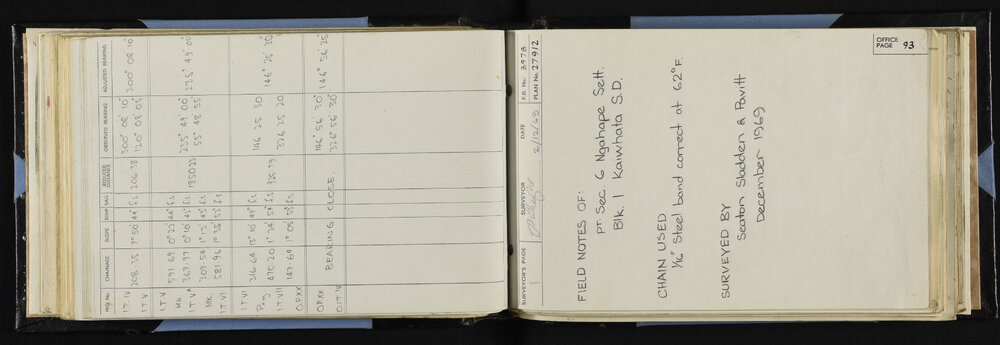 PEG No. CHAINAGE SLOPE TEMP SAG REDUCED DISTANCE OBSERVED BEARING ADJUSTED BEARING
I.T. IV 300° 08' 10"
208.35 7° 50' 44° f.s. 206.78 300° 08' 10"
I.T. V 120° 08' 05"
I.T. V
591.69 0° 22' 44° f.s.
Mk 235° 49' 00"
367.97 0° 10' 42° f.s. 1850.23 235° 49' 00"
I.T. V 55° 48' 55"
309.54 1° 13' 43° f.s.
Mk
581.96 1° 35' 52° f.s.
I.T VI
I.T VI 146 25 30
316.64 13° 10' 49° f.s.
Peg
470.20 1° 24' 54° f.s. 925.79 146° 25' 30"
I.T VII 326 25 20
147.64 1° 05' 52° f.s.
O.P.XX
O.P.XX 146° 56' 20" 146° 56' 25"
BEARING CLOSE.
O.I.T. IV 326° 56' 30"
SURVEYOR'S PAGE SURVEYOR DATE F.B. No. 3973
1 2/12/69 PLAN No. 27912
OFFICE PAGE 93
FIELD NOTES OF:
PT. Sec 6 Ngahape Sett.
Blk. 1 Kaiwhata S.D.
CHAIN USED
1/16" Steel band correct at 62°F.
SURVEYED BY
Seaton Sladden & Pavitt
December 1969